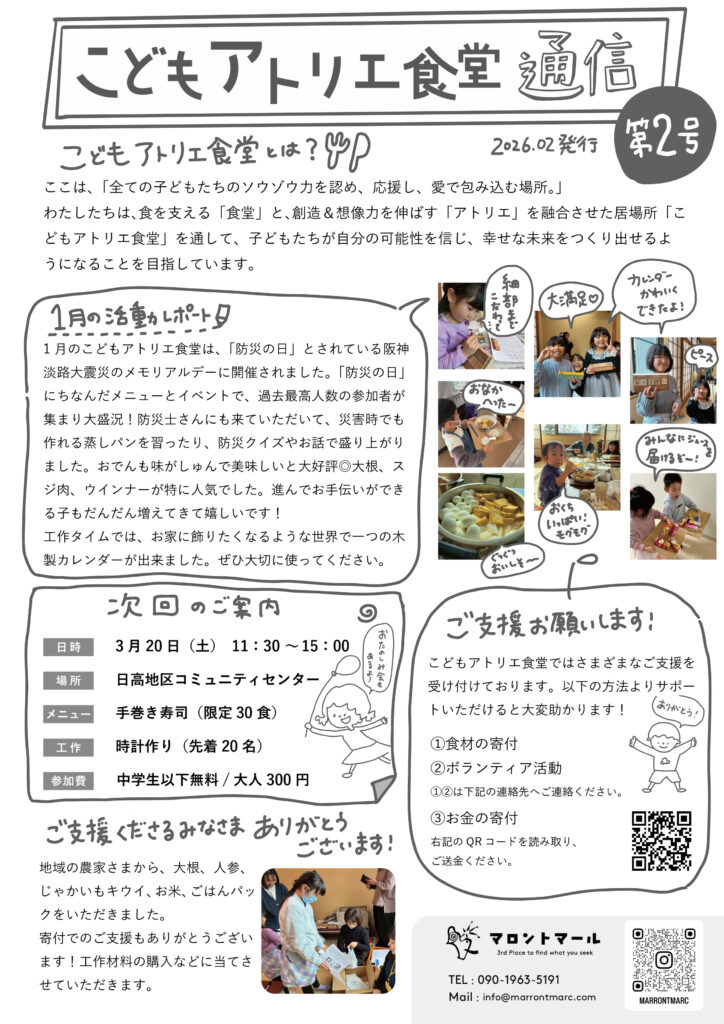 こどもアトリエ食堂 通信
第2号
2026.02 発行
こどもアトリエ食堂とは?
ここは、「全ての子どもたちのソウゾウ力を認め、応援し、愛で包み込む場所。」
わたしたちは、食を支える「食堂」と、創造＆想像力を伸ばす「アトリエ」を融合させた居場所「こ
どもアトリエ食堂」を通して、子どもたちが自分の可能性を信じ、幸せな未来をつくり出せるよ
うになることを目指しています。
1月の活動レポート
1月のこどもアトリエ食堂は、「防災の日」とされている阪神
淡路大震災のメモリアルデーに開催されました。「防災の日」
にちなんだメニューとイベントで、過去最高人数の参加者が
集まり大盛況！防災士さんにも来ていただいて、災害時でも
作れる蒸しパンを習ったり、防災クイズやお話で盛り上がり
ました。おでんも味がしゅんで美味しいと大好評◎大根、ス
ジ肉、ウインナーが特に人気でした。進んでお手伝いができ
る子もだんだん増えてきて嬉しいです！
工作タイムでは、お家に飾りたくなるような世界で一つの木
製カレンダーが出来ました。ぜひ大切に使ってください。
細部まで
こだわって
大満足♡
カレンダー
かわいく
できたよ!
ピース
おなか
へった〜
みんなにジュースを
届けるぞー!
おくち
いっぱい!
モグモグ
ぐつぐつ
おいしそ〜
次回のご案内
日時 3月20日（土） 11：30〜15：00
場所 日高地区コミュニティセンター
メニュー 手巻き寿司（限定30食）
工作 時計作り（先着20名）
参加費 中学生以下無料 / 大人300円
おたのしみ会も
あるよ!
ご支援お願いします!
こどもアトリエ食堂ではさまざまなご支援を
受け付けております。以下の方法よりサポー
トいただけると大変助かります！
ありがとう!
①食材の寄付
②ボランティア活動
①②は下記の連絡先へご連絡ください。
③お金の寄付
右記のQRコードを読み取り、
ご送金ください。
ご支援くださるみなさま ありがとう
ございます!
地域の農家さまから、大根、人参、
じゃかいもキウイ、お米、ごはんパッ
クをいただきました。
寄付でのご支援もありがとうござい
ます！工作材料の購入などに当てさ
せていただきます。
マロントマール
3rd Place to find what you seek
TEL : 090-1963-5191
Mail : info@marrontmarc.com
MARRONTMARC